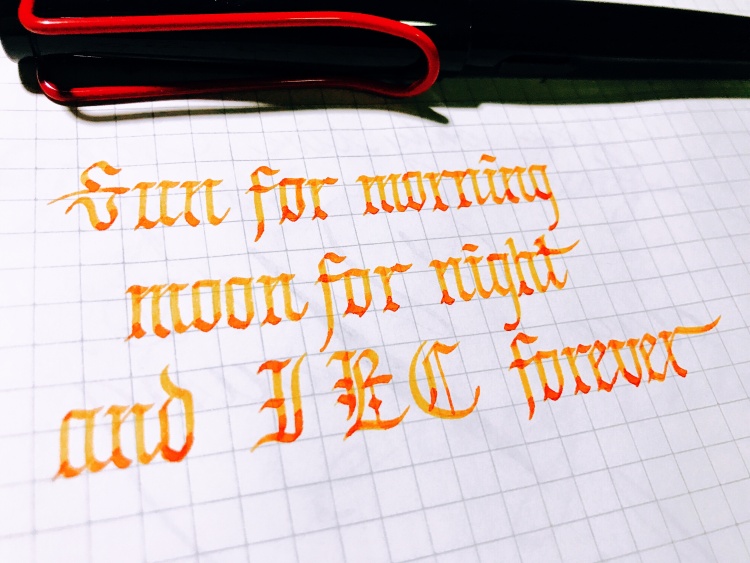 Sun for morning
moon for night
and IRC forever